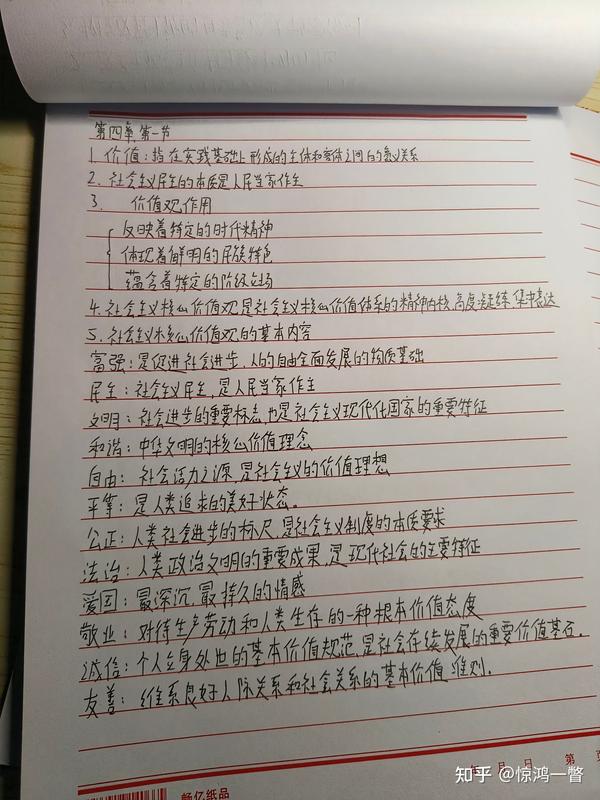 第四章第一节
1. 价值：指在实践基础上形成的主体和客体之间的意义关系
2. 社会主义民主的本质是人民当家作主
3. 价值观作用
反映着特定的时代精神
体现着鲜明的民族特色
蕴含着特定的阶级立场
4. 社会主义核心价值观是社会主义核心价值体系的精神内核,高度凝练,集中表达
5. 社会主义核心价值观的基本内容
富强：是促进社会进步,人的自由全面发展的物质基础
民主：社会主义民主,是人民当家作主
文明：社会进步的重要标志,也是社会主义现代化国家的重要特征
和谐：中华文明的核心价值理念
自由：社会活力之源,是社会主义的价值理想
平等：是人类追求的美好状态。
公正：人类社会进步的标尺,是社会主义制度的本质要求
法治：人类政治文明的重要成果,是现代社会的主要特征
爱国：最深沉,最持久的情感
敬业：对待生产劳动和人类生存的一种根本价值态度
诚信：个人立身处世的基本价值规范,是社会存续发展的重要价值基石。
友善：维系良好人际关系和社会关系的基本价值准则。
年 月 日 第 页
畅亿纸品
知乎 @惊鸿一瞥